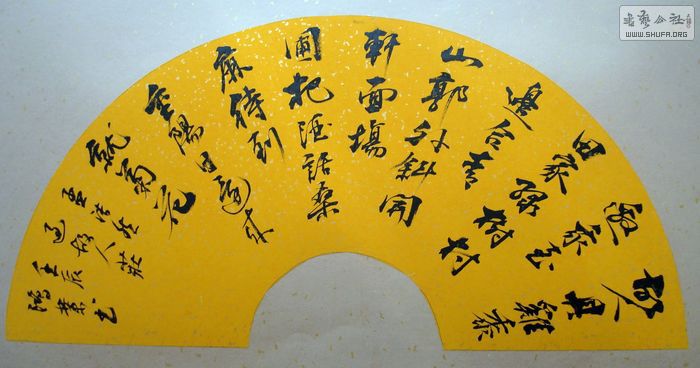 故人具雞黍
邀我至
田家綠樹村
邊合青
山郭外斜開
軒面場
圃把酒話桑
麻待到
重陽日還來
就菊花
孟浩然
過故人莊
壬辰
鴻業書
書艺公社
WWW.SHUFA.ORG